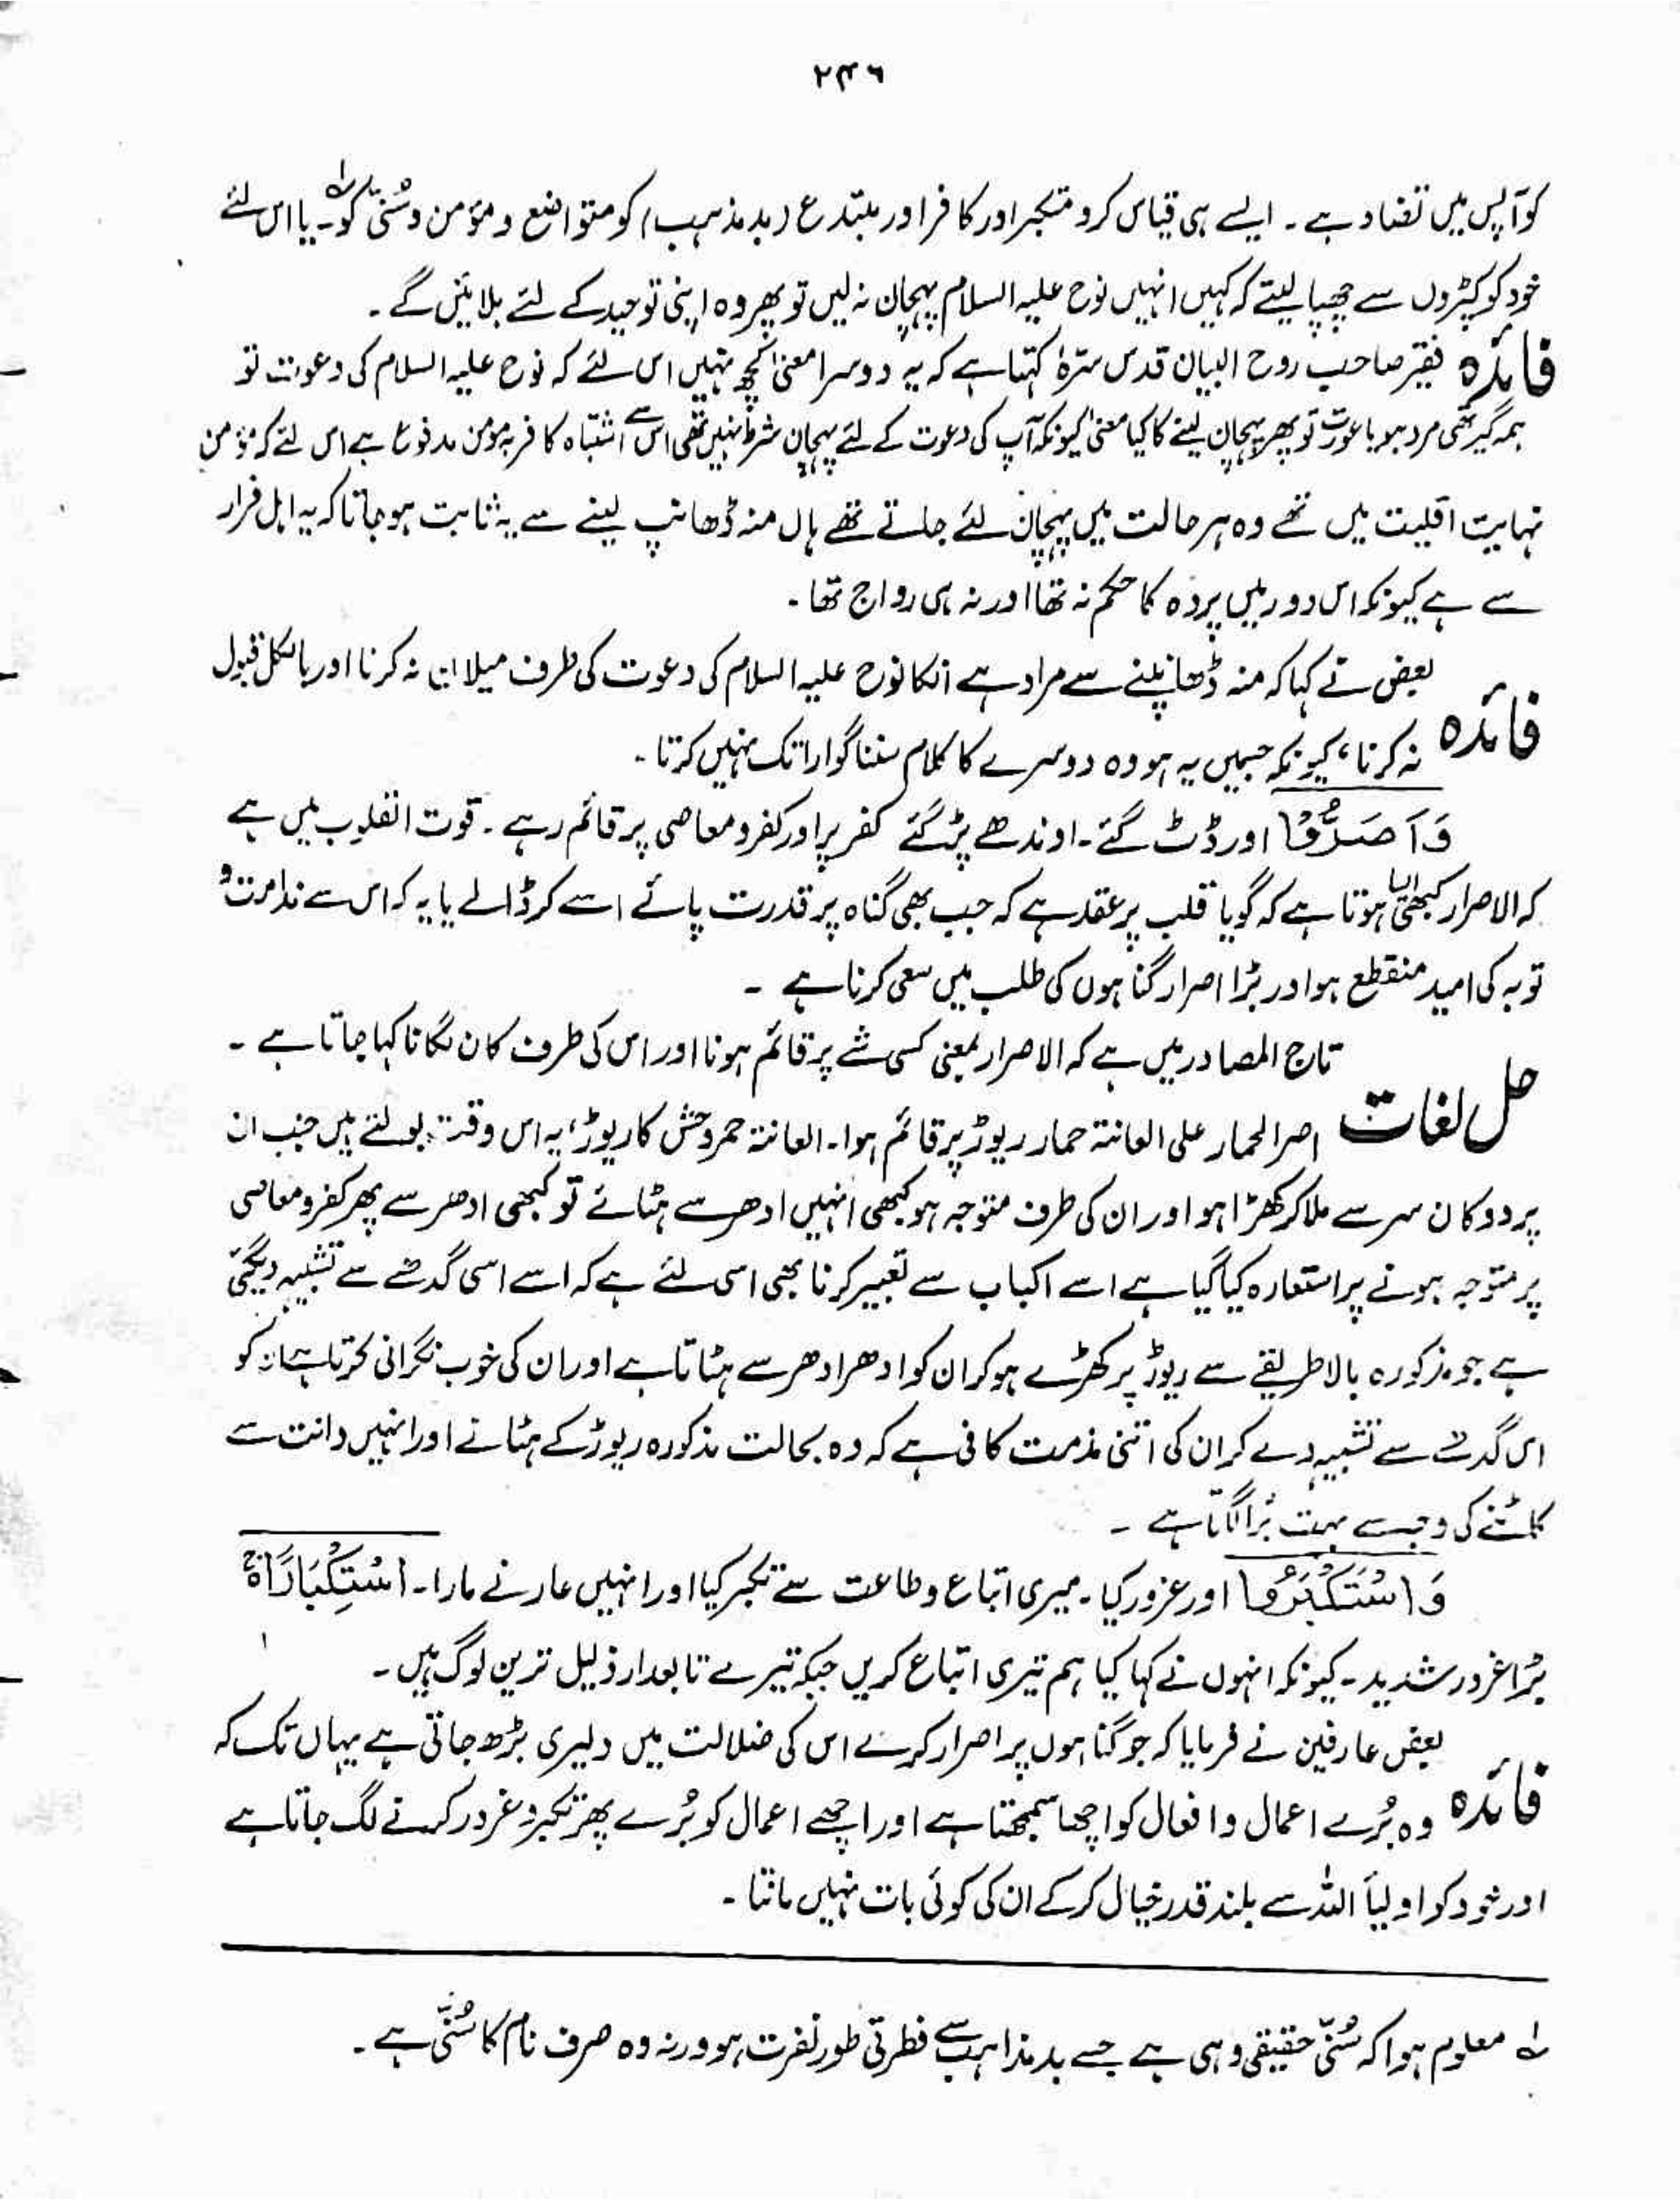 ۲۴۶
کو آپس میں تضاد ہے ۔ ایسے ہی قیاس کرو متکبر اور کافر اور مبتدع (بد مذہب) کو متواضع و مؤمن و سُنّی کو ۔ یا اس لئے
خود کو کپڑوں سے چھپا لیتے کہ کہیں انہیں نوح علیہ السلام پہچان نہ لیں تو پھر وہ اپنی توحید کے لئے بلائیں گے ۔
فائدہ فقیر صاحب روح البیان قدس سرہٗ کہتا ہے کہ یہ دوسرا معنیٰ کچھ نہیں اس لئے کہ نوح علیہ السلام کی دعوت تو
ہمہ گیر تھی مرد ہو یا عورت تو پھر پہچان لینے کا کیا معنیٰ کیونکہ آپ کی دعوت کے لئے پہچان شرط نہیں تھی اس سے اشتباہ کافر بہ مؤمن مدفوع ہے اس لئے کہ مؤمن
نہایت اقلیت میں تھے وہ ہر حالت میں پہچان لئے جاتے تھے ہاں منہ ڈھانپ لینے سے یہ ثابت ہو جاتا کہ یہ اہل فرار
سے ہے کیونکہ اس دور میں پردہ کا حکم نہ تھا اور نہ ہی رواج تھا ۔
فائدہ بعض نے کہا کہ منہ ڈھانپنے سے مراد ہے انکا نوح علیہ السلام کی دعوت کی طرف میلان نہ کرنا اور بالکل قبول
نہ کرنا ، کیونکہ جسمیں یہ ہو وہ دوسرے کا کلام سننا گوارا تک نہیں کرتا ۔
وَاَصَرُّوْا اور ڈٹ گئے ۔ اوندھے پڑ گئے کفر پر اور کفر و معاصی پر قائم رہے ۔ قوت القلوب میں ہے
کہ الاصرار کبھی ایسا ہوتا ہے کہ گویا قلب پر عقد ہے کہ جب بھی گناہ پر قدرت پائے اسے کر ڈالے یا یہ کہ اس سے ندامت و
توبہ کی امید منقطع ہو اور بڑا اصرار گناہوں کی طلب میں سعی کرنا ہے ۔
حل لغات تاج المصادر میں ہے کہ الاصرار بمعنی کسی شے پر قائم ہونا اور اس کی طرف کان لگانا کہا جاتا ہے ۔
اصر الحمار علی العانتہ حمار ریوڑ پر قائم ہوا ۔ العانتہ حمر وحش کا ریوڑ ، یہ اس وقت بولتے ہیں جب ان
پر دو کان سر سے ملا کر کھڑا ہو اور ان کی طرف متوجہ ہو کبھی انہیں ادھر سے ہٹائے تو کبھی ادھر سے پھر کفر و معاصی
پر متوجہ ہونے پر استعارہ کیا گیا ہے اسے اکباب سے تعبیر کرنا بھی اسی لئے ہے کہ اسے اسی گدھے سے تشبیہ دیگئی
ہے جو مذکورہ بالا طریقے سے ریوڑ پر کھڑے ہو کر ان کو ادھر ادھر سے ہٹاتا ہے اور ان کی خوب نگرانی کرتا ہے ان کو
اس گدھے سے تشبیہ دے کر ان کی اتنی مذمت کافی ہے کہ وہ بحالت مذکورہ ریوڑ کے ہٹانے اور انہیں دانت سے
کاٹنے کی وجہ سے بہت بُرا لگتا ہے ۔
وَاسْتَكْبَرُوا اور غرور کیا ۔ میری اتباع و طاعت سے تکبر کیا اور انہیں عار نے مارا ۔ اسْتِكْبَارًا
بڑا غرور شدید ۔ کیونکہ انہوں نے کہا کیا ہم تیری اتباع کریں جبکہ تیرے تابعدار ذلیل ترین لوگ ہیں ۔
فائدہ بعض عارفین نے فرمایا کہ جو گناہوں پر اصرار کرے اس کی ضلالت میں دلیری بڑھ جاتی ہے یہاں تک کہ
وہ بُرے اعمال و افعال کو اچھا سمجھتا ہے اور اچھے اعمال کو بُرے پھر تکبر و غرور کرنے لگ جاتا ہے
اور خود کو اولیاَ اللہ سے بلند قدر خیال کر کے ان کی کوئی بات نہیں مانتا ۔
لہ معلوم ہوا کہ سُنّی حقیقی وہی ہے جسے بد مذاہب سے فطرتی طور نفرت ہو ورنہ وہ صرف نام کا سُنّی ہے ۔